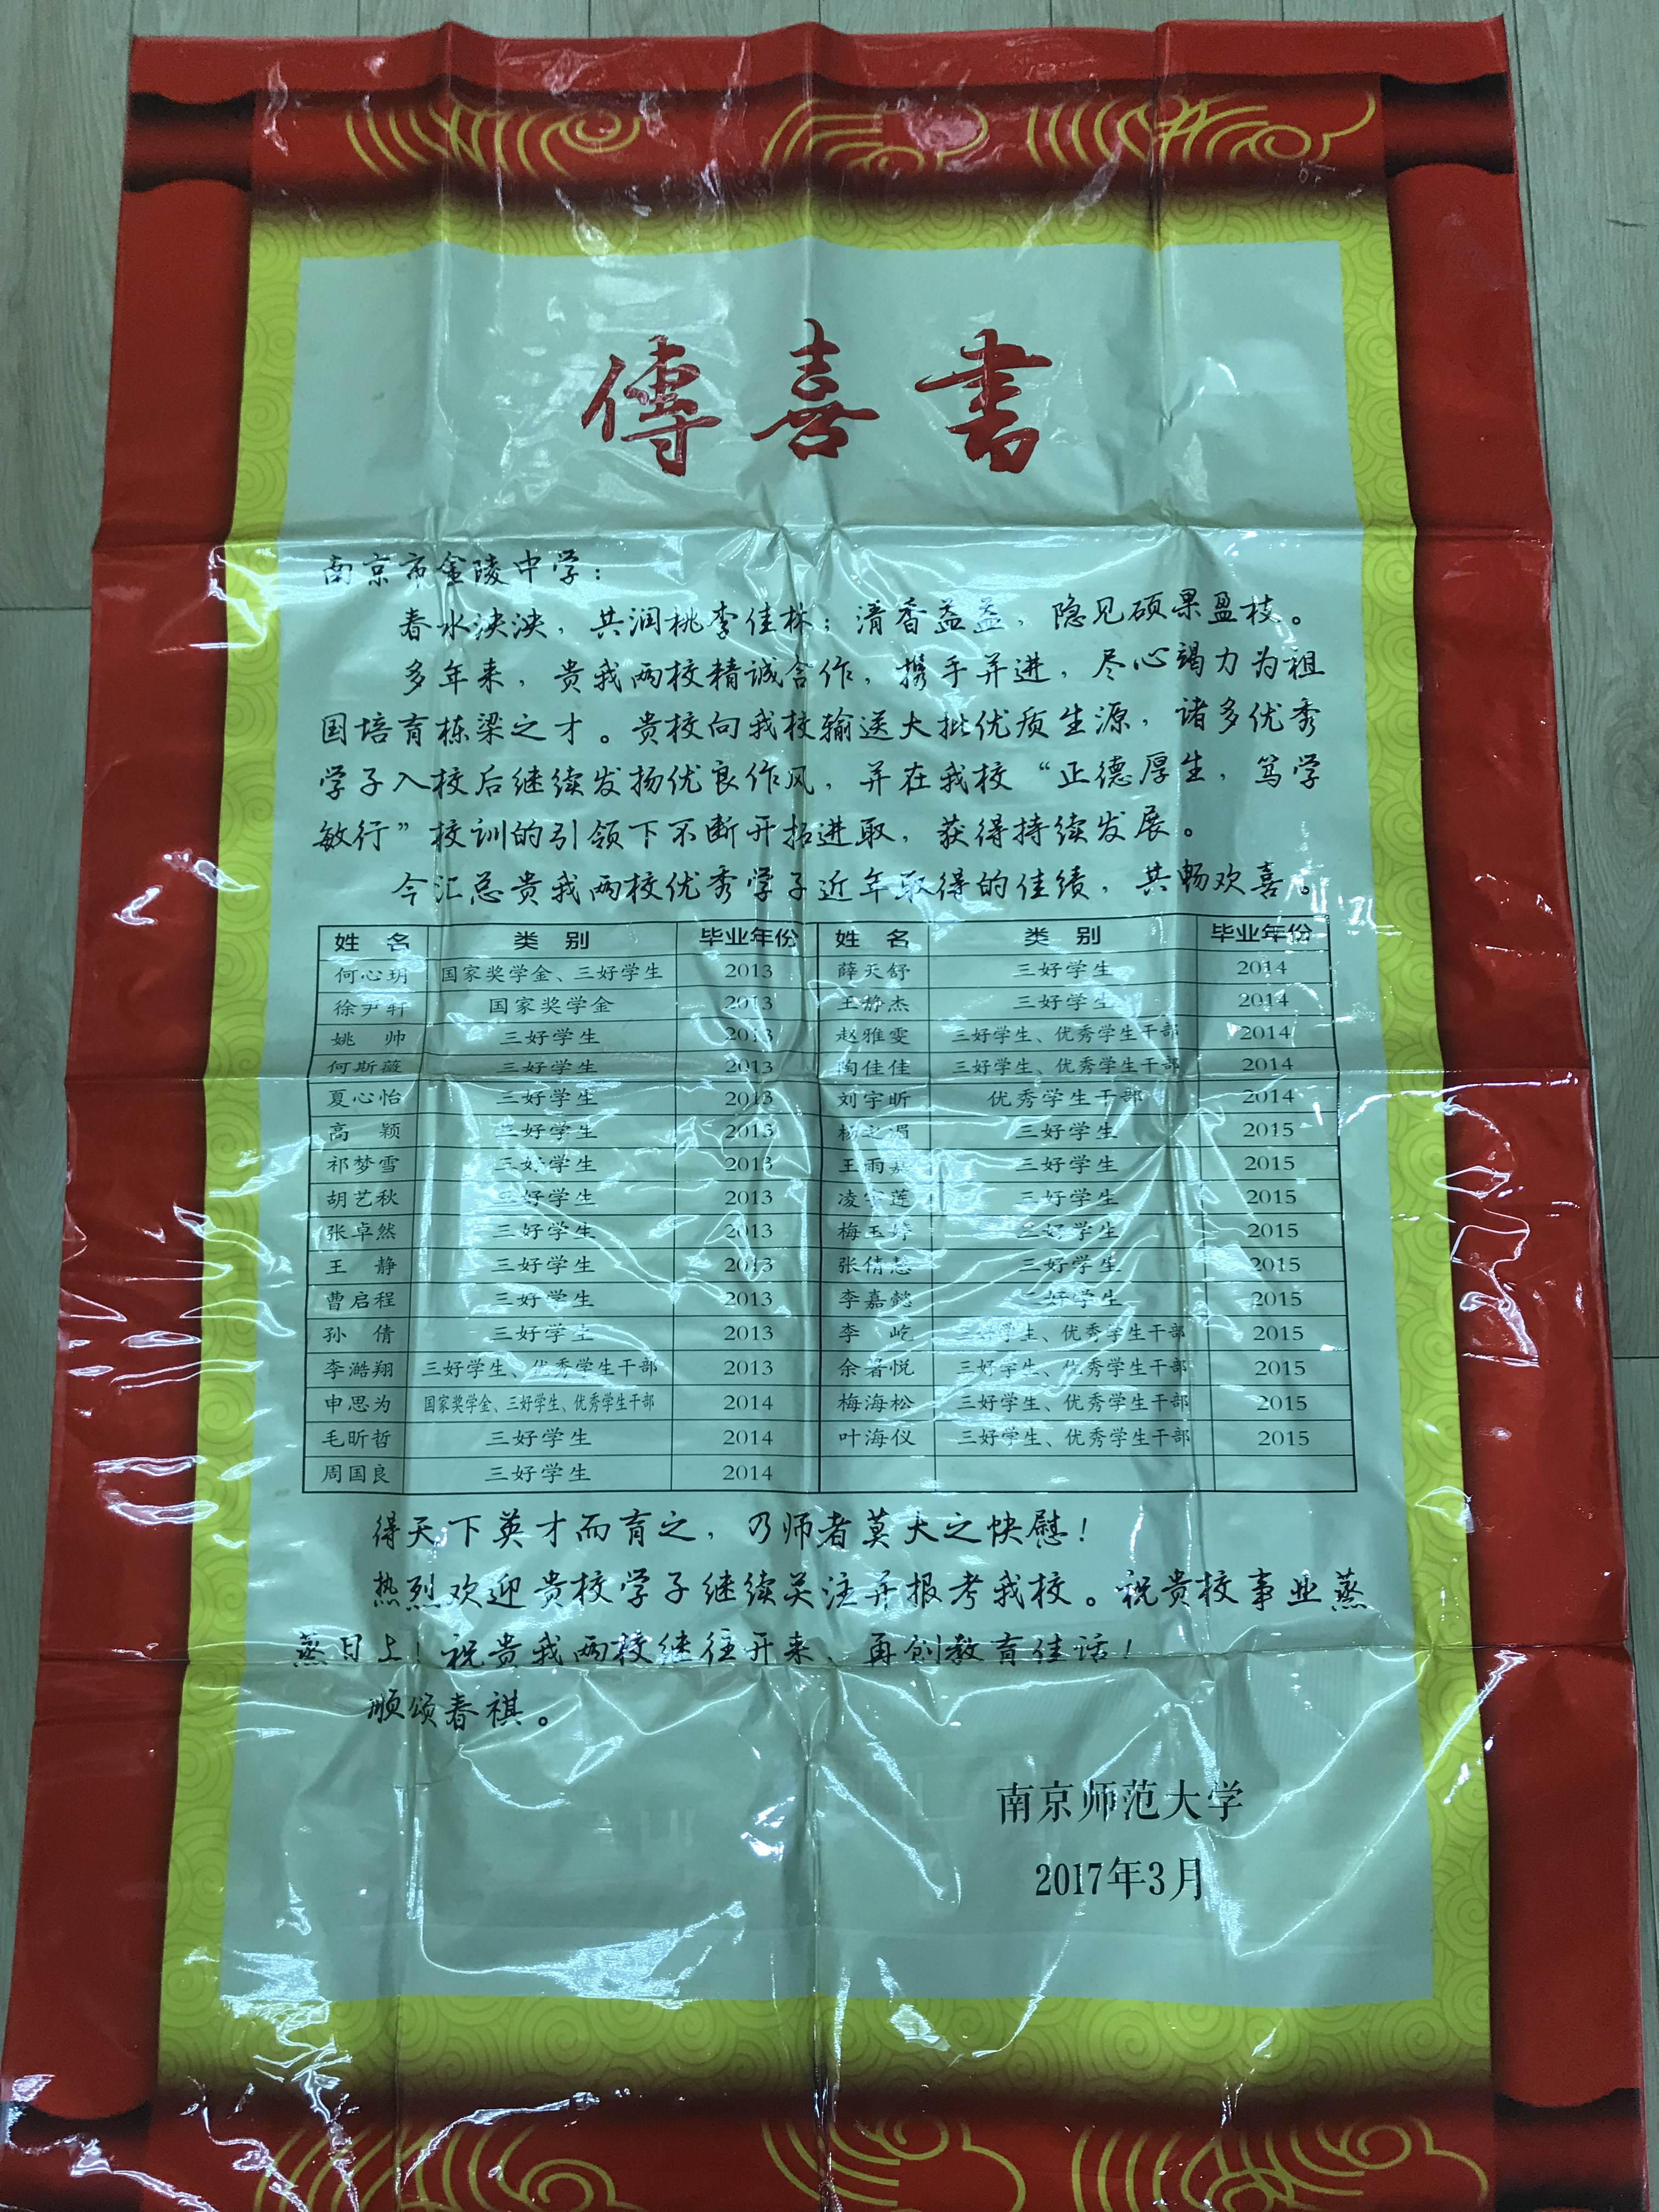 傳喜書
南京市金陵中学：
春水泱泱，共润桃李佳林；清香益益，隐见硕果盈枝。
多年来，贵我两校精诚合作，携手并进，尽心竭力为祖
国培育栋梁之才。贵校向我校输送大批优质生源，诸多优秀
学子入校后继续发扬优良作风，并在我校“正德厚生，笃学
敏行”校训的引领下不断开拓进取，获得持续发展。
今汇总贵我两校优秀学子近年取得的佳绩，共畅欢喜。
姓 名 类 别 毕业年份 姓 名 类 别 毕业年份
何心玥 国家奖学金、三好学生 2013 薛天舒 三好学生 2014
徐尹轩 国家奖学金 2013 王静杰 三好学生 2014
姚 帅 三好学生 2013 赵雅雯 三好学生、优秀学生干部 2014
何斯薇 三好学生 2013 陶佳佳 三好学生、优秀学生干部 2014
夏心怡 三好学生 2013 刘宇昕 优秀学生干部 2014
高 颖 三好学生 2013 三好学生 2015
祁梦雪 三好学生 2013 王雨嘉 三好学生 2015
胡艺秋 三好学生 2013 凌宇莲 三好学生 2015
张卓然 三好学生 2013 梅玉婷 三好学生 2015
王 静 三好学生 2013 三好学生 2015
曹启程 三好学生 2013 李嘉懿 三好学生 2015
孙 倩 三好学生 2013 李 屹 三好学生、优秀学生干部 2015
李澔翔 三好学生、优秀学生干部 2013 余署悦 三好学生、优秀学生干部 2015
申思为 国家奖学金、三好学生、优秀学生干部 2014 梅海松 三好学生、优秀学生干部 2015
毛昕哲 三好学生 2014 叶海仪 三好学生、优秀学生干部 2015
周国良 三好学生 2014
得天下英才而育之，乃师者莫大之快慰！
热烈欢迎贵校学子继续关注并报考我校。祝贵校事业蒸
蒸日上！祝贵我两校继往开来、再创教育佳话！
顺颂春祺。
南京师范大学
2017年3月